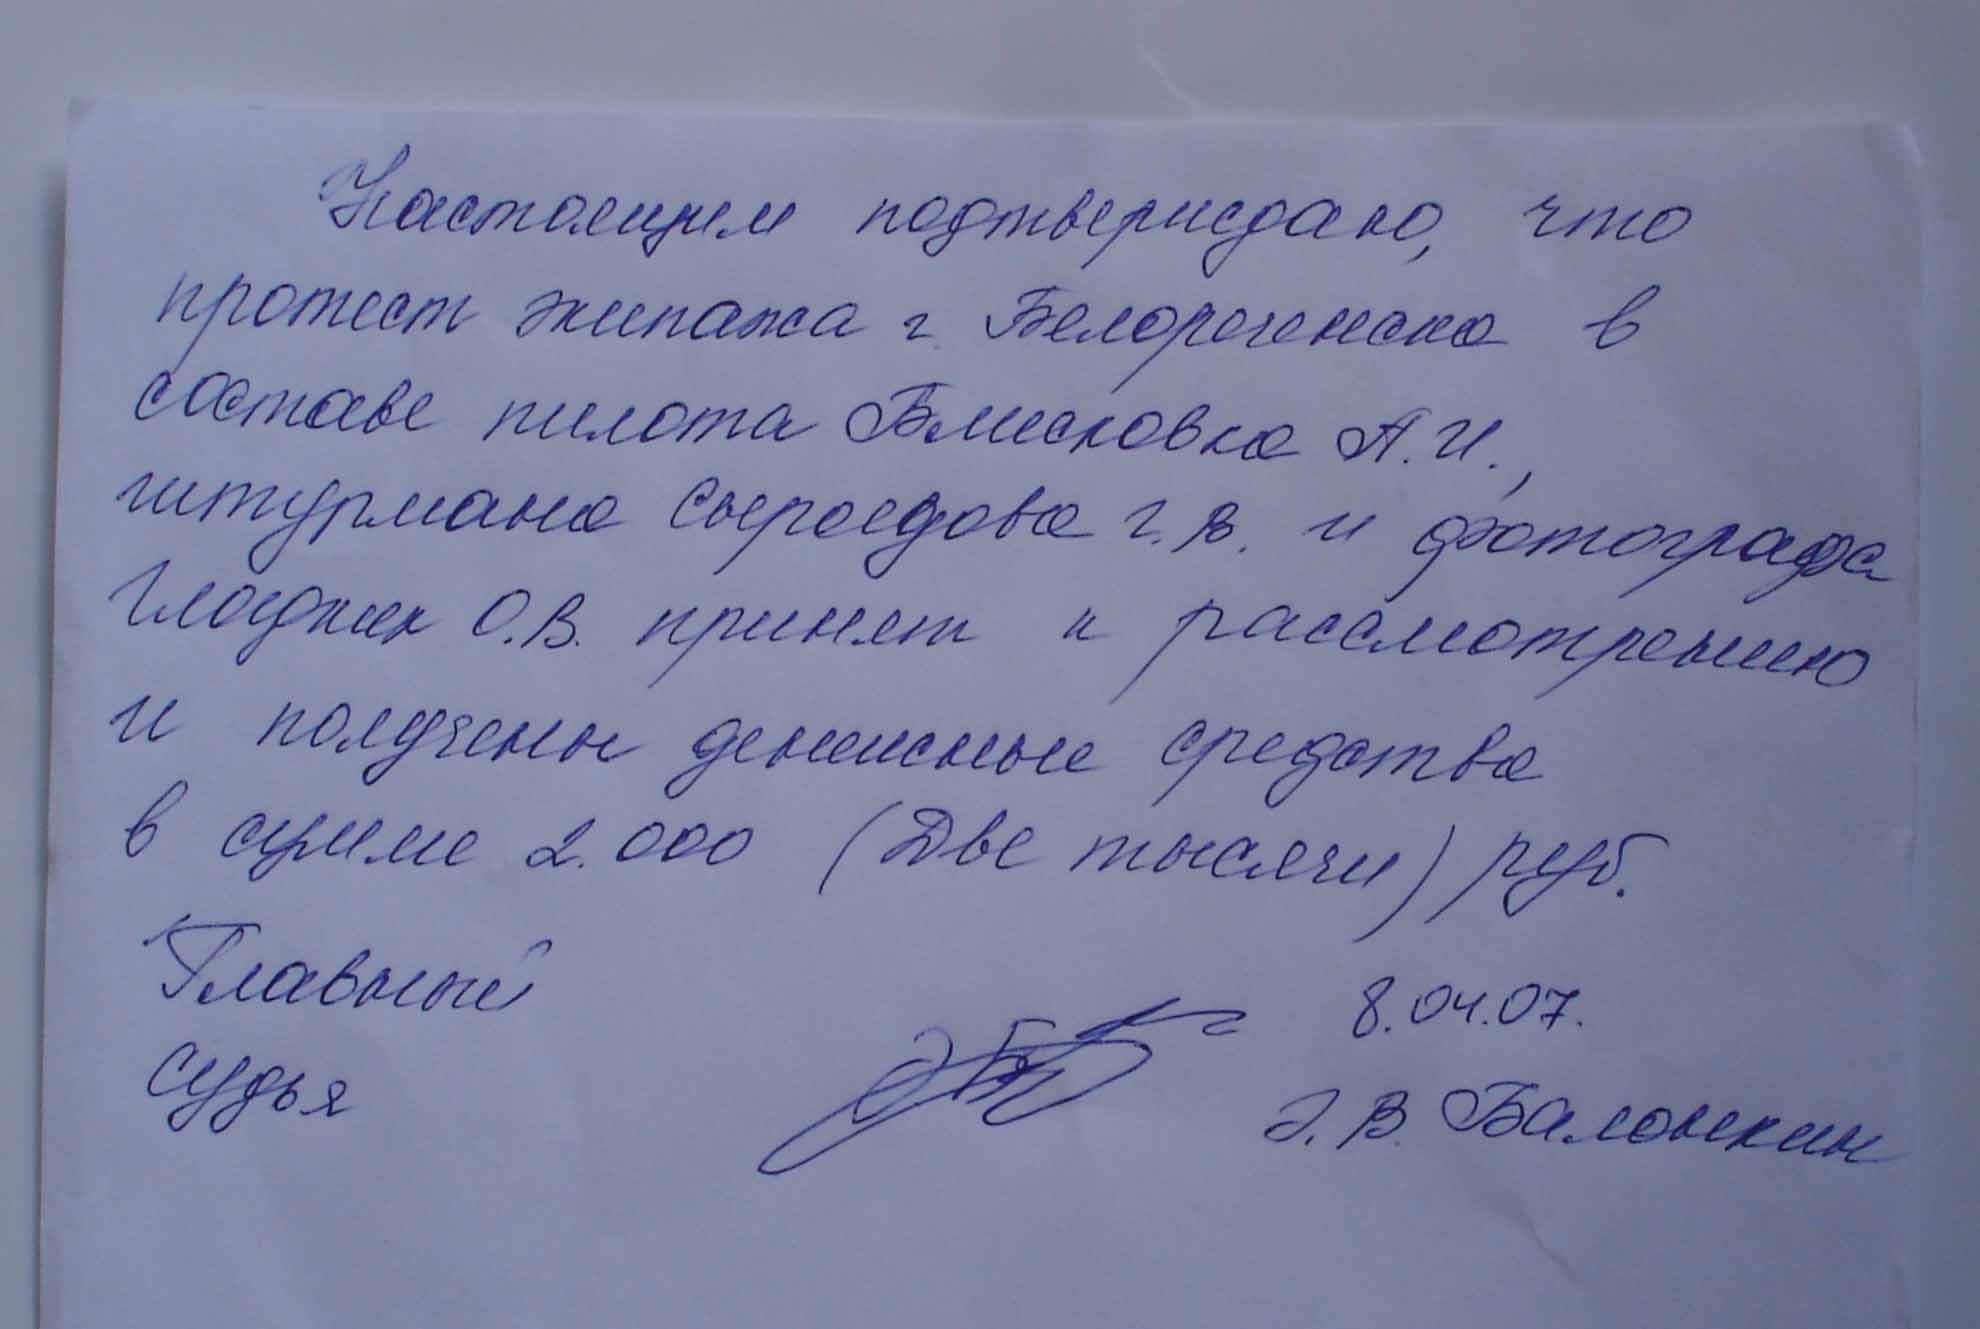 Настоящим подтверждаю, что
протест экипажа г. Белореченска в
составе пилота Близковка А.И.,
штурмана Сыроедова Г.В. и фотографа
Гладких О.В. принят к рассмотрению
и получены денежные средства
в сумме 2.000 (Две тысячи) руб.
Главный
судья
8.04.07.
Э.В. Балонкин